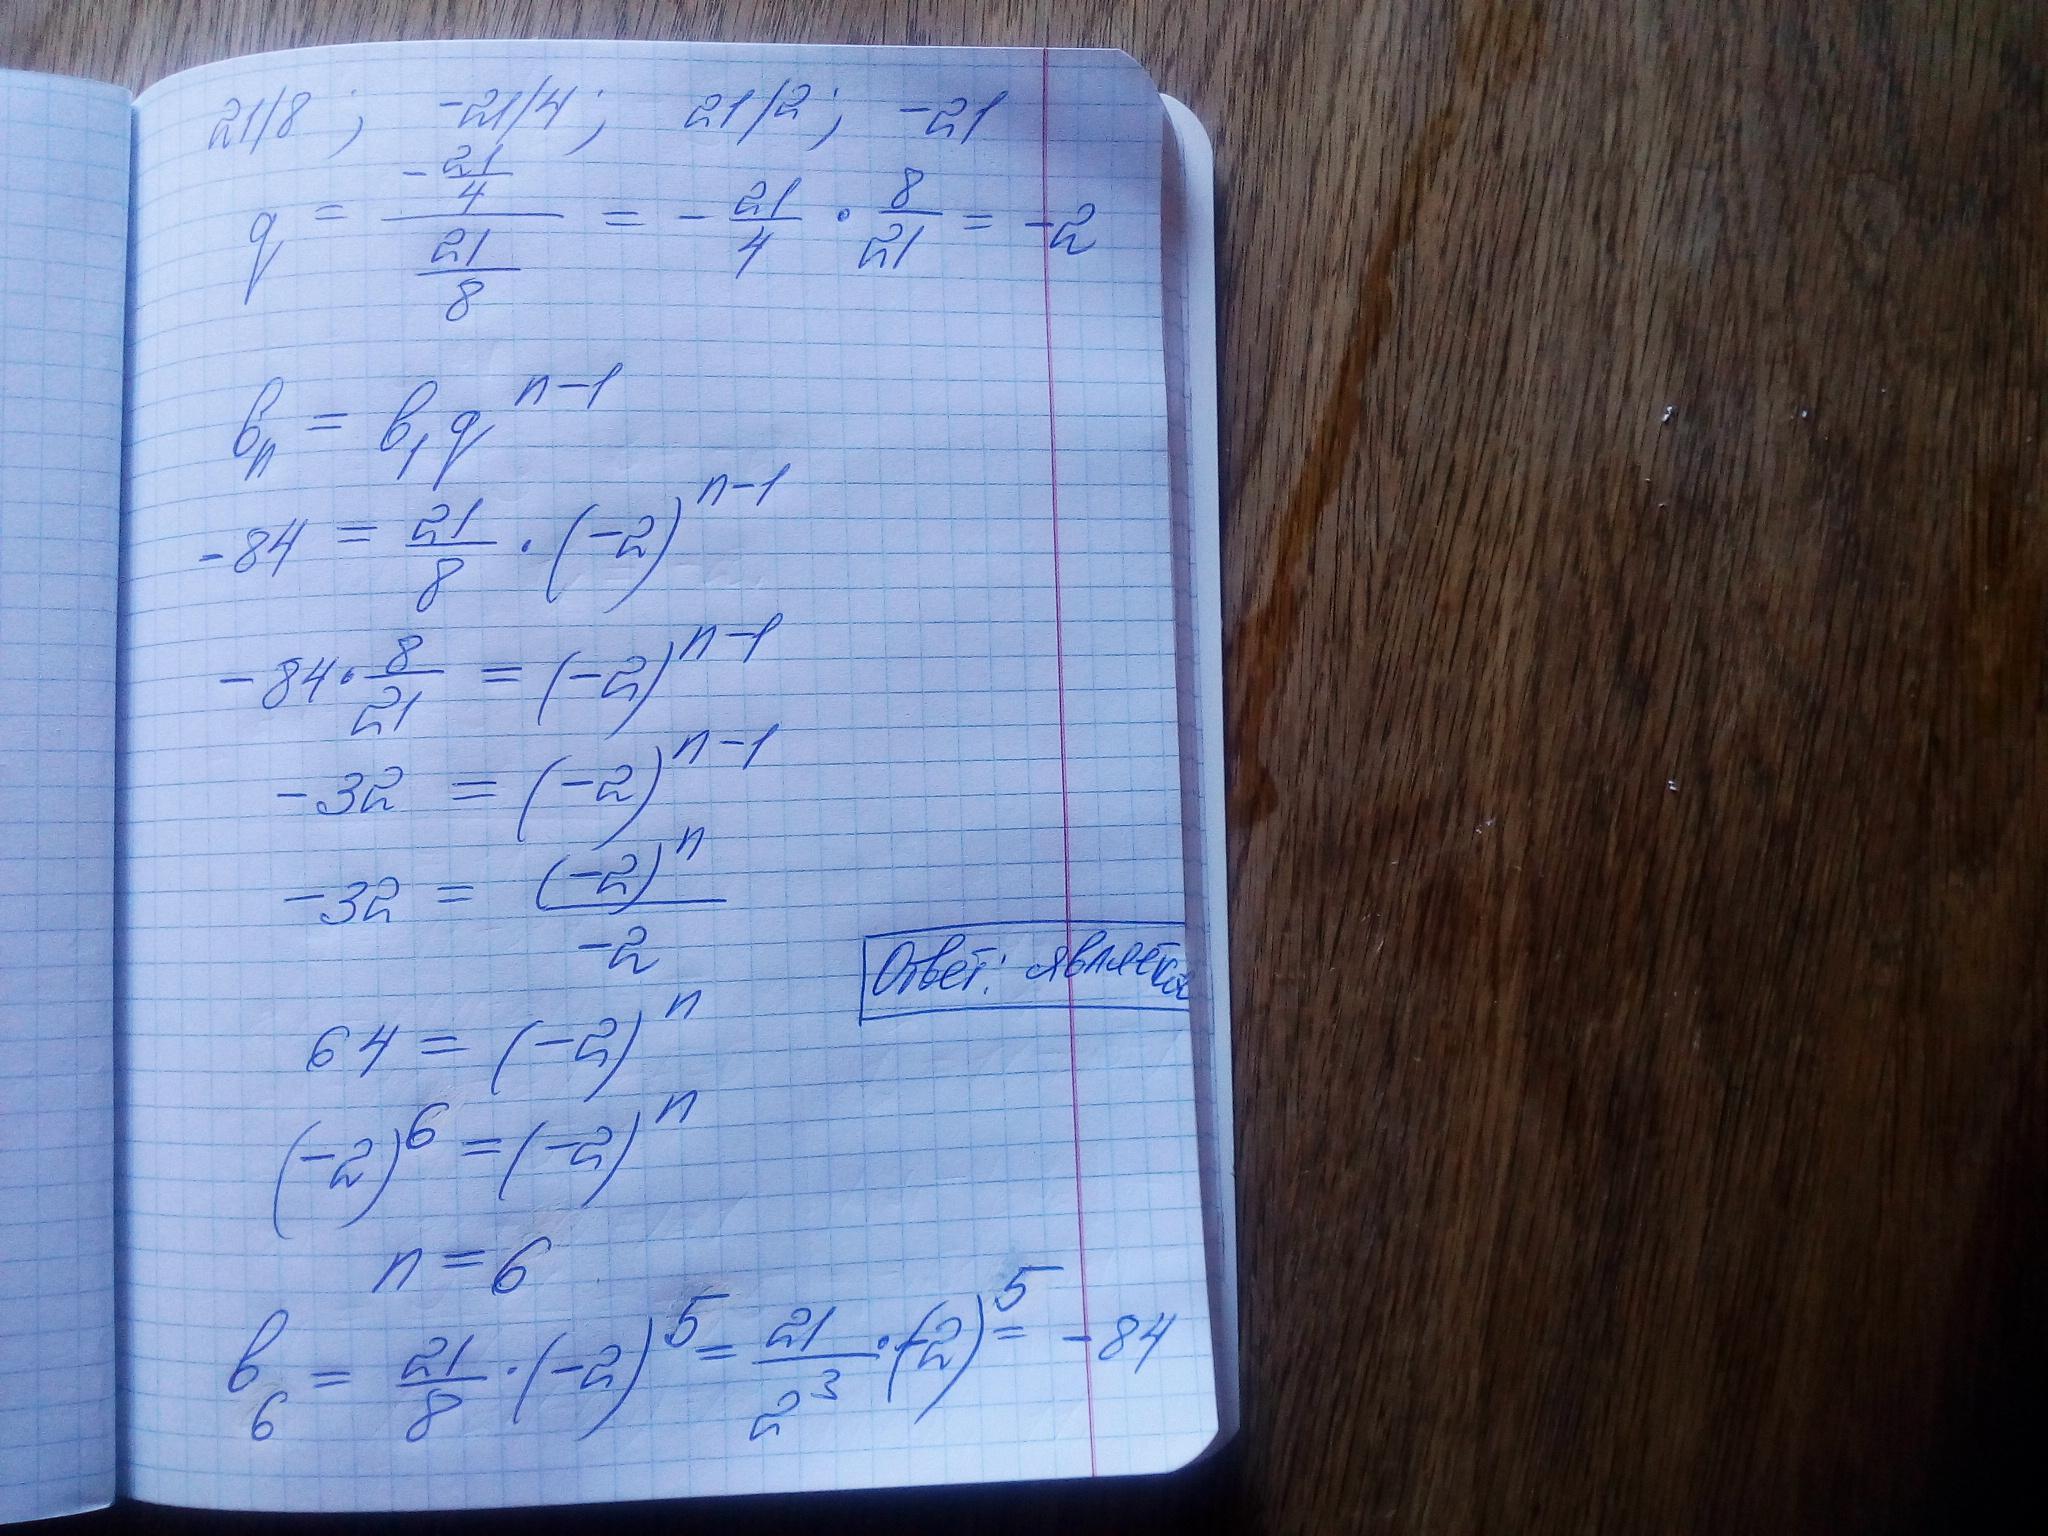 21/8 ; -21/4 ; 21/2 ; -21
q = (-21/4)/(21/8) = - 21/4 · 8/21 = -2
bₙ = b₁qⁿ⁻¹
-84 = 21/8 · (-2)ⁿ⁻¹
-84 · 8/21 = (-2)ⁿ⁻¹
-32 = (-2)ⁿ⁻¹
-32 = (-2)ⁿ/-2
Ответ: является
64 = (-2)ⁿ
(-2)⁶ = (-2)ⁿ
n = 6
b₆ = 21/8 · (-2)⁵ = 21/2³ · (-2)⁵ = -84